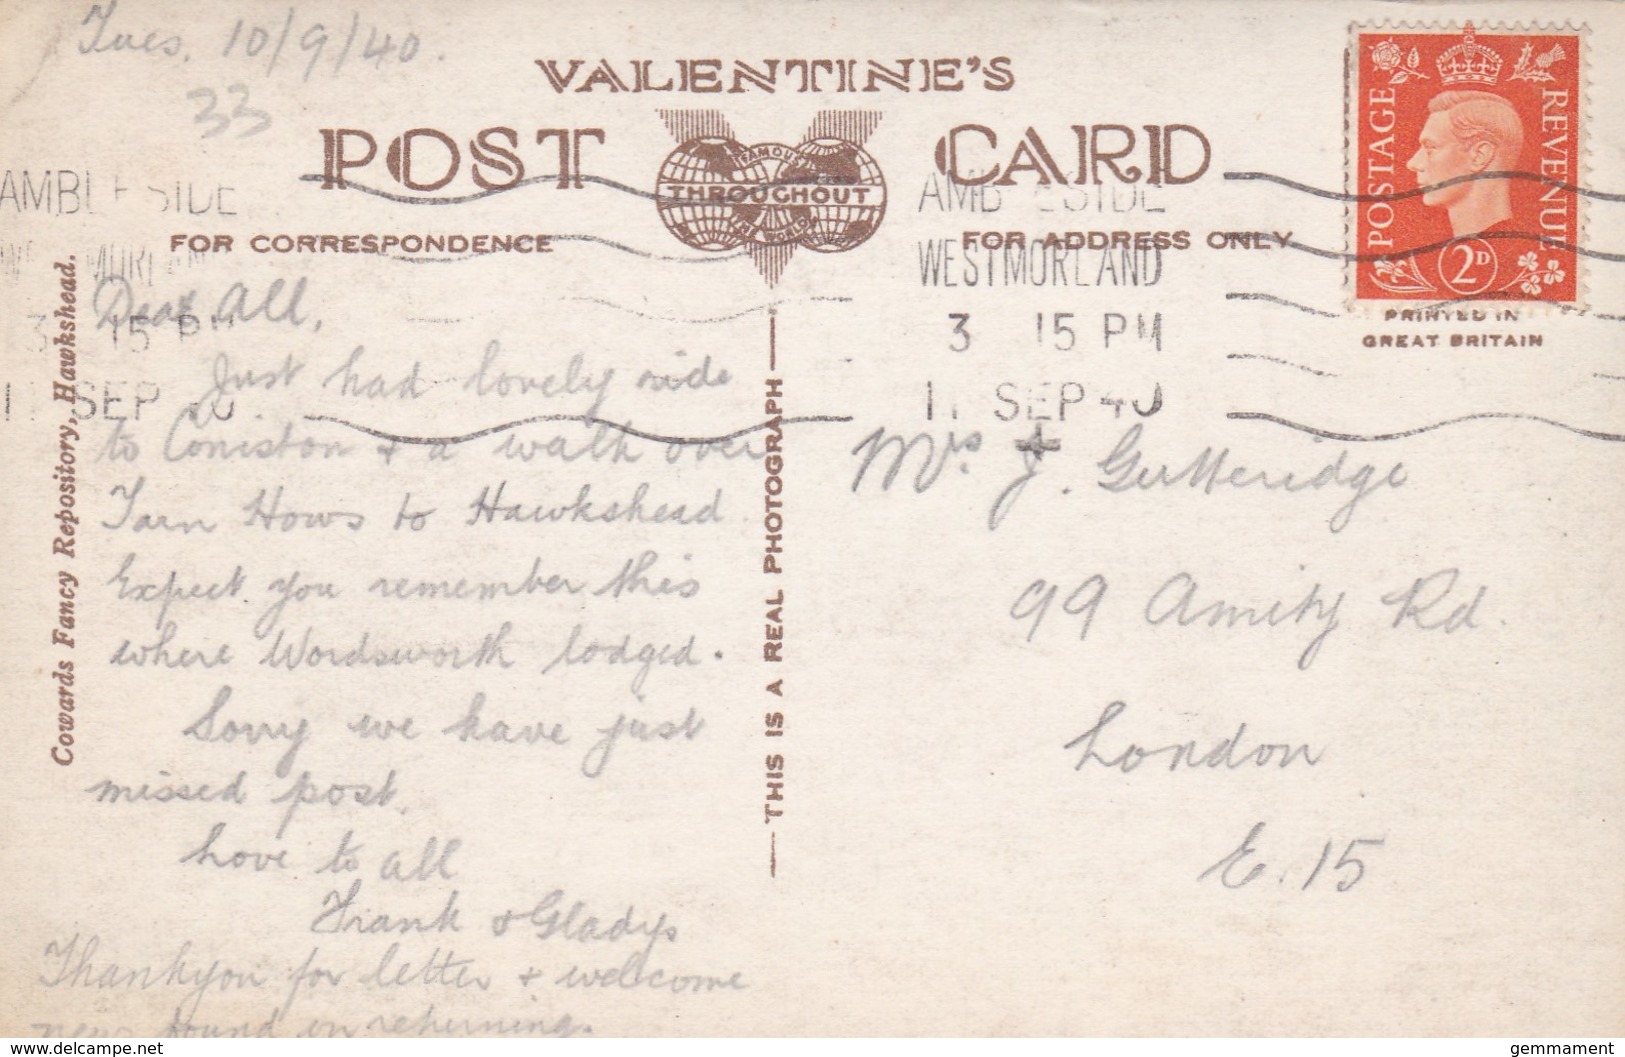 Tues. 10/9/40.
33
VALENTINE'S
POST CARD
FAMOUS
THROUGHOUT
THE WORLD
FOR CORRESPONDENCE
FOR ADDRESS ONLY
POSTAGE
REVENUE
2D
PRINTED IN
GREAT BRITAIN
AMBLESIDE
WESTMORLAND
3 15 PM
11 SEP 40
AMBLESIDE
WESTMORLAND
3 15 PM
11 SEP 40
Cowards Fancy Repository, Hawkshead.
Dear All,
Just had lovely ride
to Coniston + a walk over
Tarn Hows to Hawkshead
Expect you remember this
where Wordsworth lodged.
Sorry we have just
missed post.
Love to all
Frank & Gladys
Thankyou for letter + welcome
news found on returning.
THIS IS A REAL PHOTOGRAPH
Mrs + J. Gutteridge
99 Amity Rd.
London
E. 15
https://www.delcampe.net
gemmament